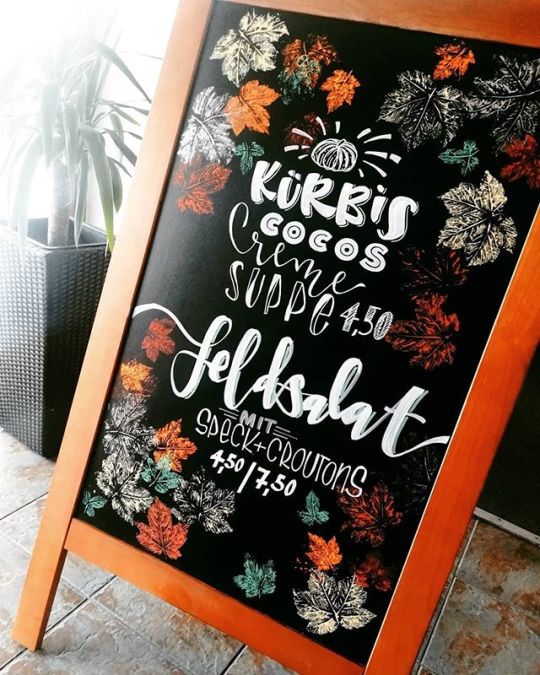 KÜRBIS
COCOS
Creme
SUPPE 4,50
Feldsalat
MIT
SPECK+CROUTONS
4,50/7,50